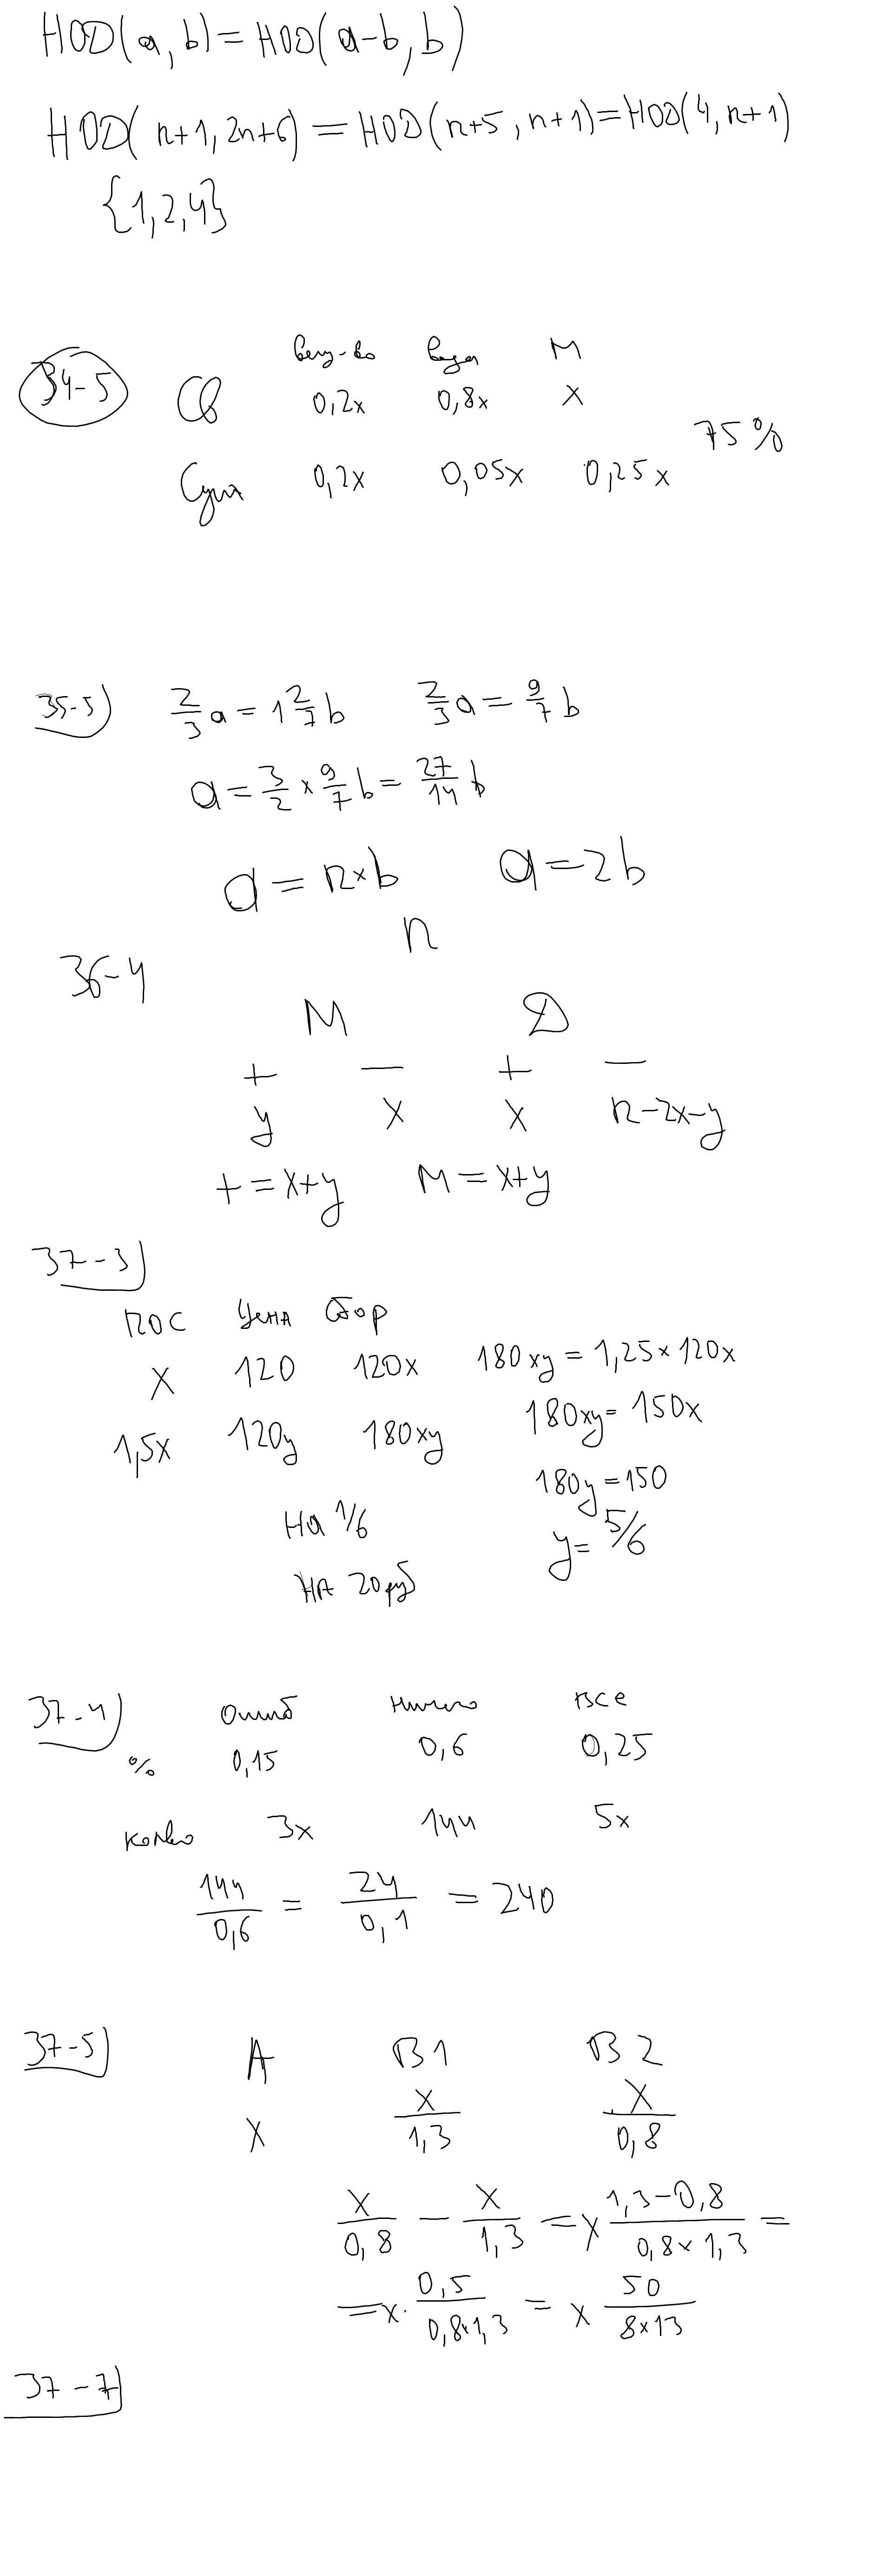 НОD(a, b) = НОD(a-b, b)
НОD(n+1, 2n+6) = НОD(n+5, n+1) = НОD(4, n+1)
{1, 2, 4}
вещ-во вода M
34-5 Св 0,2x 0,8x x
75%
Суш 0,2x 0,05x 0,25x
35-5) 2/3 a = 1 2/7 b 2/3 a = 9/7 b
a = 3/2 × 9/7 b = 27/14 b
a = n×b a = 2b
n
36-4
M D
+ — + —
y x x n-2x-y
+ = x+y M = x+y
37-3)
ПОС Цена Сбор
x 120 120x 180xy = 1,25×120x
1,5x 120y 180xy 180xy = 150x
180y = 150
На 1/6 y = 5/6
НА 20 руб
37-4) Ошиб ничего все
% 0,15 0,6 0,25
кол-во 3x 144 5x
144/0,6 = 24/0,1 = 240
37-5) A B1 B2
x x/1,3 x/0,8
x/0,8 - x/1,3 = x (1,3-0,8)/(0,8×1,3) =
= x · 0,5/(0,8×1,3) = x 50/(8×13)
37-7)